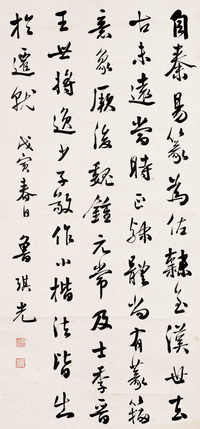 自秦易篆為佐隸至漢世去
古未遠當時正隸體尚有篆籀
意象厥後魏鍾元常及士季晉
王世將逸少子敬作小楷法皆出
於遷就 戊寅春日 魯琪光